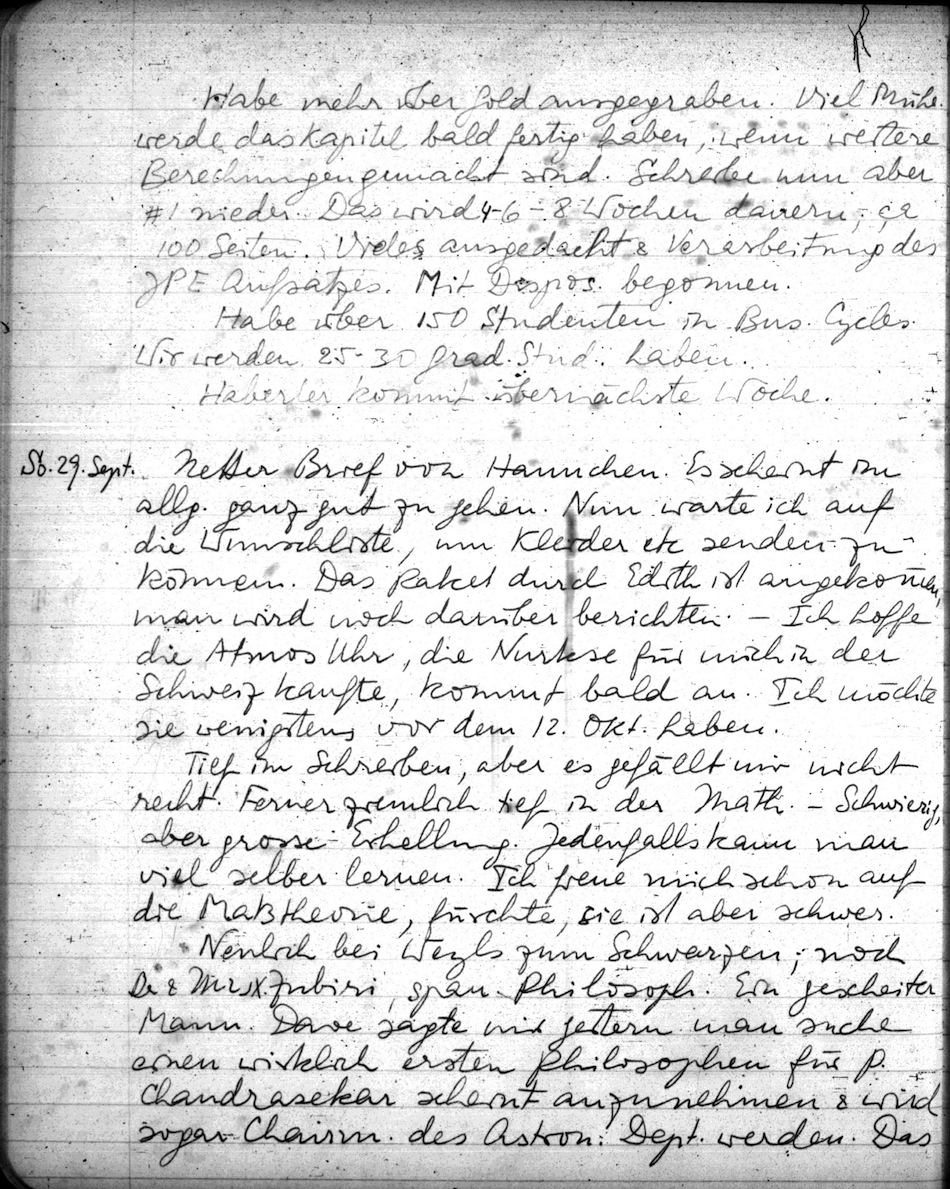 Habe mehr über Gold ausgegraben. Viel Mühe.
werde das Kapitel bald fertig haben, wenn weitere
Berechnungen gemacht sind. Schreibe nun aber
#1 nieder. Das wird 4-6-8 Wochen dauern; ca
100 Seiten. Vieles ausgedacht & Verarbeitung des
JPE Aufsatzes. Mit Dispos. begonnen.
Habe über 150 Studenten in Bus. Cycles.
Wir werden 25-30 grad. Stud. haben.
Haberler kommt übernächste Woche.
So. 29. Sept. Netter Brief von Hannchen. Es scheint im
allg. ganz gut zu gehen. Nun warte ich auf
die Wunschliste, um Kleider etc senden zu
können. Das Paket durch Edith ist angekommen,
man wird noch darüber berichten. – Ich hoffe
die Atmos Uhr, die Nurkse für mich in der
Schweiz kaufte, kommt bald an. Ich möchte
sie wenigstens vor dem 12. Okt. haben.
Tief im Schreiben, aber es gefällt mir nicht
recht. Ferner ziemlich tief in der Math. – Schwierig,
aber grosse Erhellung. Jedenfalls kann man
viel selber lernen. Ich freue mich schon auf
die Maßtheorie, fürchte, sie ist aber schwer.
Neulich bei Weyls zum Schwarzen; noch
Dr & Mrs X. Zubiri, span. Philosoph. Ein gescheiter
Mann. Dave sagte mir gestern man suche
einen wirklich ersten Philosophen für P.
Chandrasekar scheint anzunehmen & wird
sogar Chairm. des Astron. Dept. werden. Das